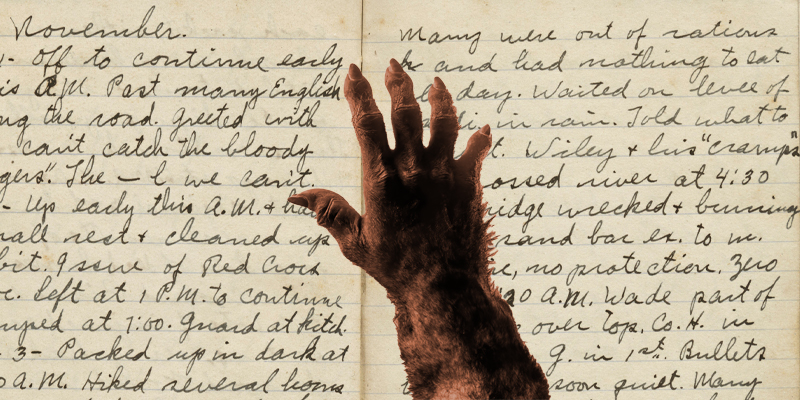 November.
- Off to continue early
is A.M. Past many English
ng the road. Greeted with
can't catch the bloody
gers". The — l we can't.
- Up early this A.M. +
nall rest + cleaned up
bit. Issue of Red Cross
Left at 1 P.M. to continue
mped at 7:00. Guard at kitch.
3- Packed up in dark at
A.M. Hiked several hours
Many were out of rations
and had nothing to eat
day. Waited on levee of
in rain. Told what to
Wiley + his "cramps"
ossed river at 4:30
ridge wrecked + burning
sand bar ex. to m.
no protection. Zero
30 A.M. Wade part of
over Top. Co. H. in
g. in 1st. Bullets
soon quiet. Many